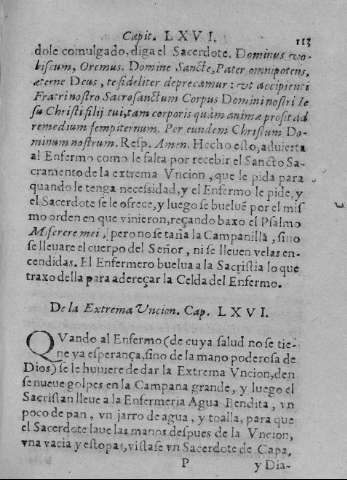 Capit. LXVI. 113
dole comulgado, diga el Sacerdote. Dominus vo-
biscum, Oremus. Domine Sancte, Pater omnipotens,
æterne Deus, te fideliter deprecamur: vt accipienti
Fratri nostro Sacrosanctum Corpus Domini nostri Ie
su Christi filij tui, tam corporis quàm animæ prosit ad
remedium sempiternum. Per eundem Christum Do-
minum nostrum. Resp. Amen. Hecho esto, aduierta
al Enfermo como le falta por recebir el Sancto Sa-
cramento de la extrema Vncion, que le pida para
quando le tenga necessidad, y el Enfermo le pide, y
el Sacerdote se le ofrece, y luego se bueluẽ por el mis
mo orden en que vinieron, reçando baxo el Psalmo
Miserere mei, pero no se taña la Campanilla, sino
se lleuare el cuerpo del Señor, ni se lleuen velas en-
cendidas. El Enfermero buelua a la Sacristia lo que
traxo della para adereçar la Celda del Enfermo.
De la Extrema Vncion. Cap. LXVI.
QVando al Enfermo (de cuya salud no se tie-
ne ya esperança, sino de la mano poderosa de
Dios) se le huuiere de dar la Extrema Vncion, den
se nueue golpes en la Campana grande, y luego el
Sacristan lleue a la Enfermeria Agua Bendita, vn
poco de pan, vn jarro de agua, y toalla, para que
el Sacerdote laue las manos despues de la Vncion,
vna vacia y estopas, vistase vn Sacerdote de Capa,
P y Dia-